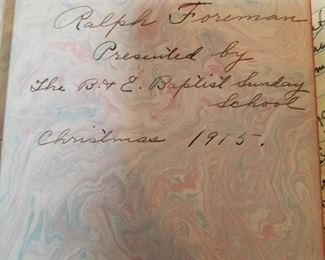 Ralph Foreman
Presented by
The B. & E. Baptist Sunday
School
Christmas 1915.